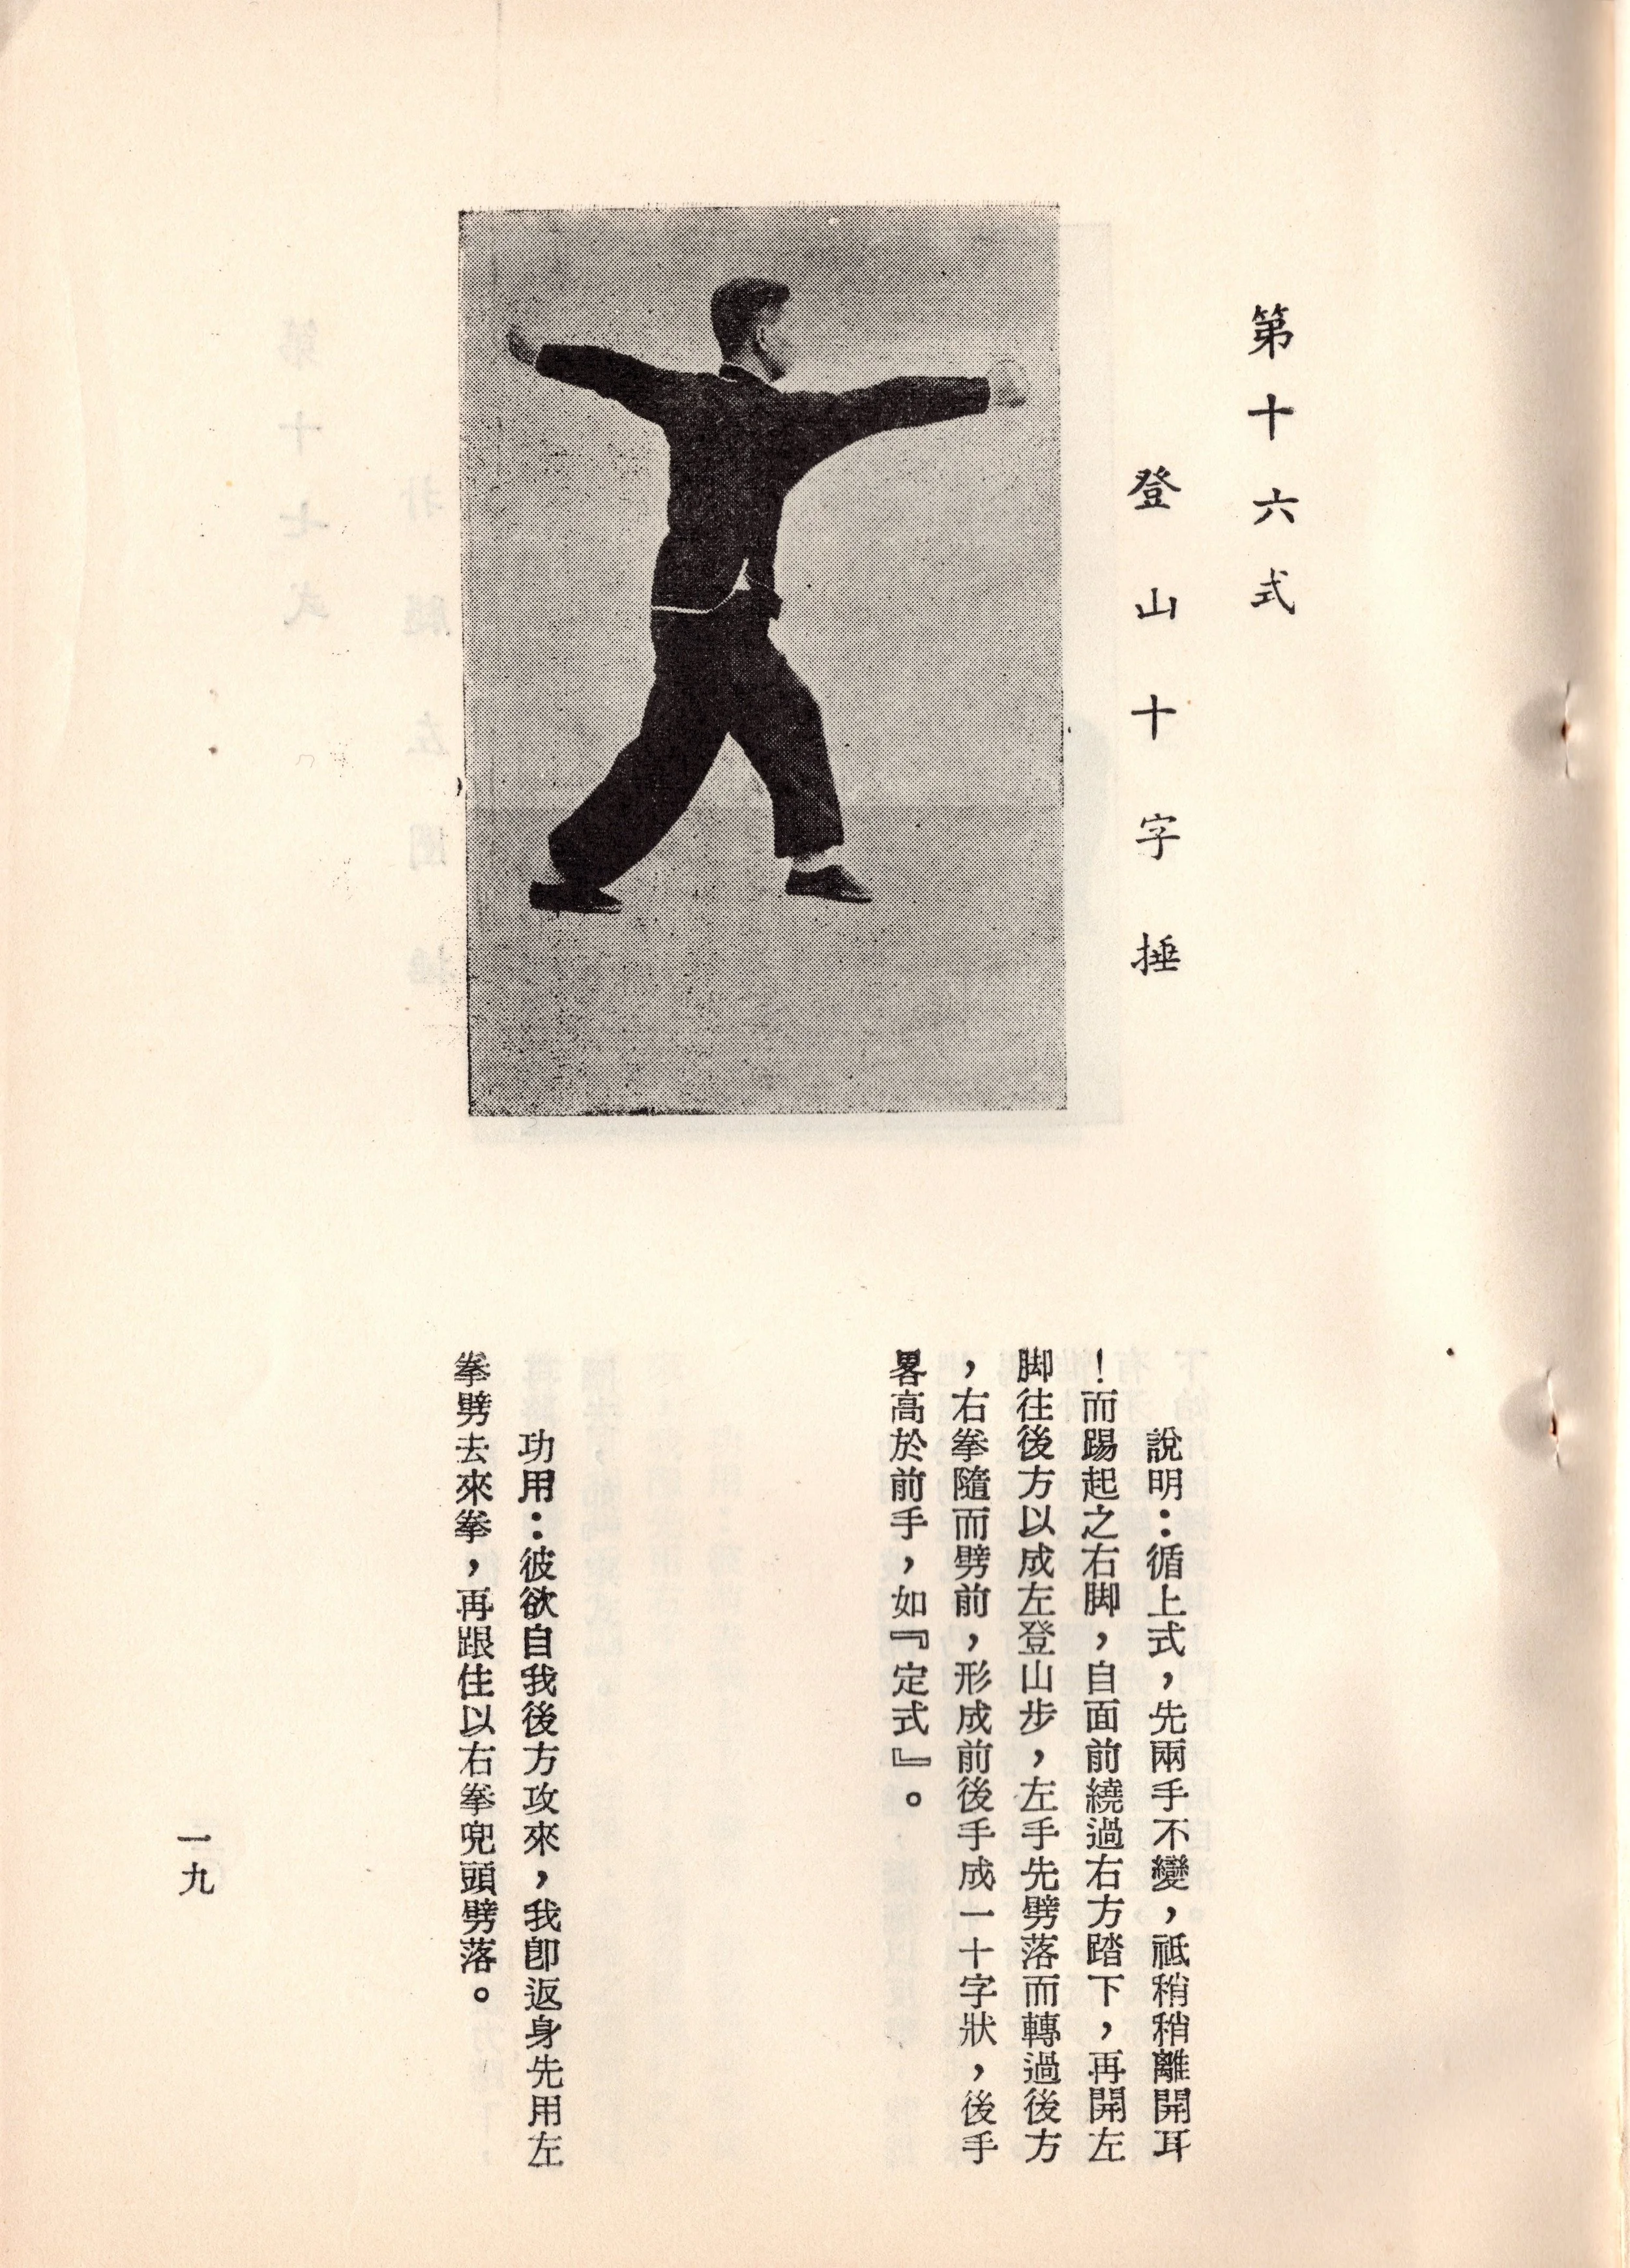 第十六式
登山十字捶
說明：循上式，先兩手不變，祗稍稍離開耳
！而踢起之右脚，自面前繞過右方踏下，再開左
脚往後方以成左登山步，左手先劈落而轉過後方
，右拳隨而劈前，形成前後手成一十字狀，後手
畧高於前手，如『定式』。
功用：彼欲自我後方攻來，我卽返身先用左
拳劈去來拳，再跟住以右拳兜頭劈落。
一九